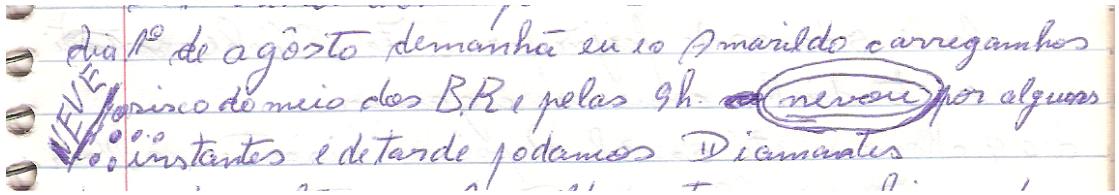 dia 1º de agôsto demanhã eu e o Amarildo carregamhos
NEVE o sisco do meio dos BR e pelas 9h. nevou por alguns
instantes e de tarde podamos Diamantes